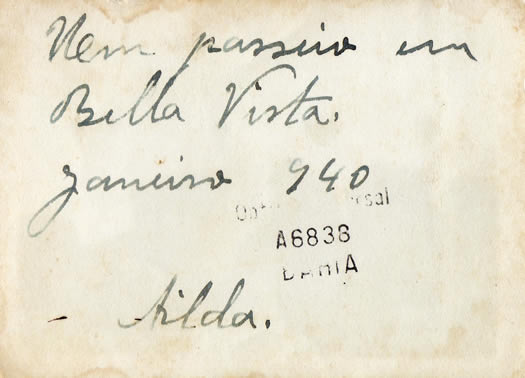 Nem passeio em
Bella Vista.
janeiro 940
A6838
BAHIA
- Ailda.